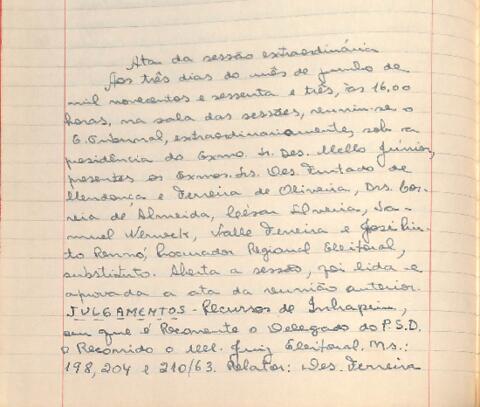 Ata da sessão extraordinária
Aos três dias do mês de junho de
mil novecentos e sessenta e três, às 16,00
horas, na sala das sessões, reuniu-se o
E. Tribunal, extraordinariamente, sob a
presidência do Exmo. Sr. Des. Mello Júnior,
presentes os Exmos. Srs. Des. Furtado de
Mendonça e Ferreira de Oliveira, Drs. Cor-
reia de Almeida, César Silveira, Sa-
muel Werneck, Valle Ferreira e José Pin-
to Rennó, Procurador Regional Eleitoral,
substituto. Aberta a sessão, foi lida e
aprovada a ata da reunião anterior.
JULGAMENTOS - Recursos de Inhapim,
em que é Recorrente o Delegado do P.S.D.
e Recorrido o M. Juiz Eleitoral. Ns.:
198, 204 e 210/63. Relator: Des. Ferreira